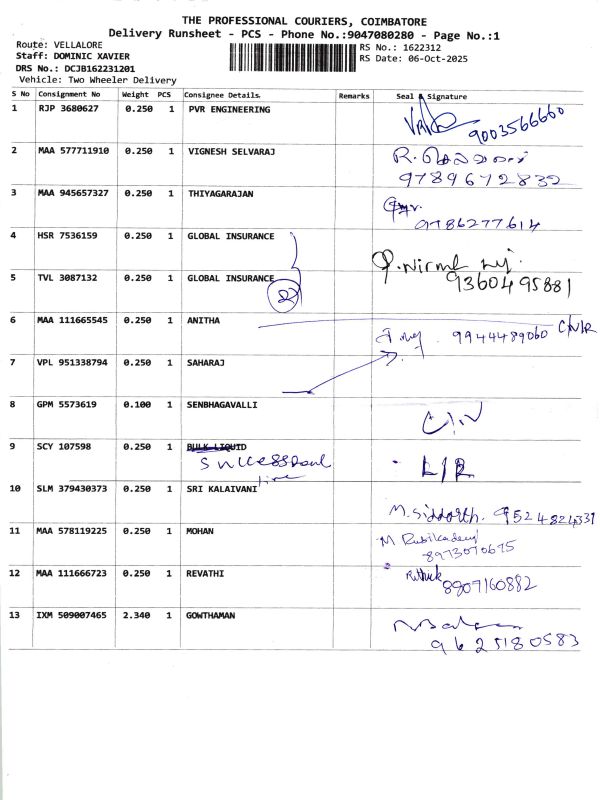 THE PROFESSIONAL COURIERS, COIMBATORE
Delivery Runsheet - PCS - Phone No.:9047080280 - Page No.:1
Route: VELLALORE
Staff: DOMINIC XAVIER
DRS No.: DCJB162231201
Vehicle: Two Wheeler Delivery
RS No.: 1622312
RS Date: 06-Oct-2025
S No Consignment No Weight PCS Consignee Details. Remarks Seal & Signature
1 RJP 3680627 0.250 1 PVR ENGINEERING 9003566660
2 MAA 577711910 0.250 1 VIGNESH SELVARAJ
9789672832
3 MAA 945657327 0.250 1 THIYAGARAJAN
9786277614
4 HSR 7536159 0.250 1 GLOBAL INSURANCE
5 TVL 3087132 0.250 1 GLOBAL INSURANCE 9360495881
2
6 MAA 111665545 0.250 1 ANITHA
9944489060
7 VPL 951338794 0.250 1 SAHARAJ
8 GPM 5573619 0.100 1 SENBHAGAVALLI
9 SCY 107598 0.250 1 BULK LIQUID
L/R
10 SLM 379430373 0.250 1 SRI KALAIVANI
M. Siddarth. 9524824337
11 MAA 578119225 0.250 1 MOHAN
8973070675
12 MAA 111666723 0.250 1 REVATHI
8807160882
13 IXM 509007465 2.340 1 GOWTHAMAN
9625180583